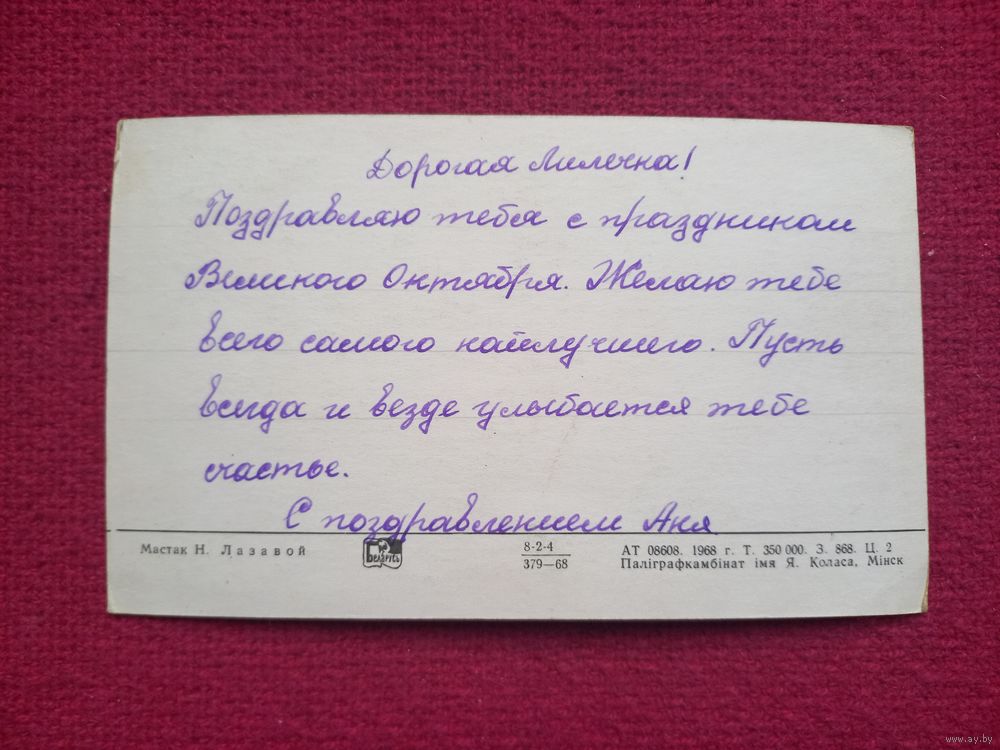 Дорогая Милечка!
Поздравляю тебя с праздником
Великого Октября. Желаю тебе
всего самого наилучшего. Пусть
всегда и везде улыбается тебе
счастье.
С поздравлением Аня
Мастак Н. Лазавой
Беларусь
8-2-4
379—68
АТ 08608. 1968 г. Т. 350 000. З. 868. Ц. 2
Паліграфкамбінат імя Я. Коласа, Мінск
www.ay.by